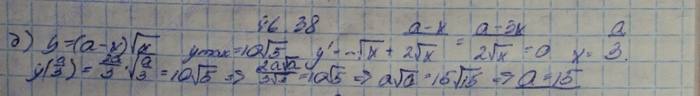 46.38
д) y=(a-x)√x ymax=10√5 y'=-√x + (a-x)/(2√x) = (a-3x)/(2√x) =0 x= a/3.
y(a/3) = 2a/3 · √(a/3) = 10√5 ⇒ 2a√a/(3√3) = 10√5 ⇒ a√a = 15√15 ⇒ a=15